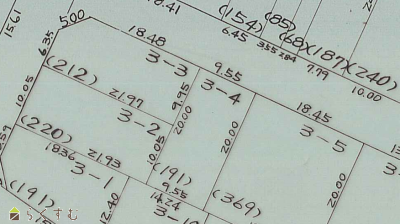 18.41
(154)
(85)
(68)(187)(240)
6.45
3.55
2.84
7.79
10.00
15.61
6.35
500
18.48
3-3
9.55
3-4
18.45
3-5
(212)
10.05
21.97
9.95
20.00
3-2
20.00
20.00
(220)
10.05
1836
21.93
3-1
(191)
9.55
14.24
(369)
(191)
12.40
ちんすむ